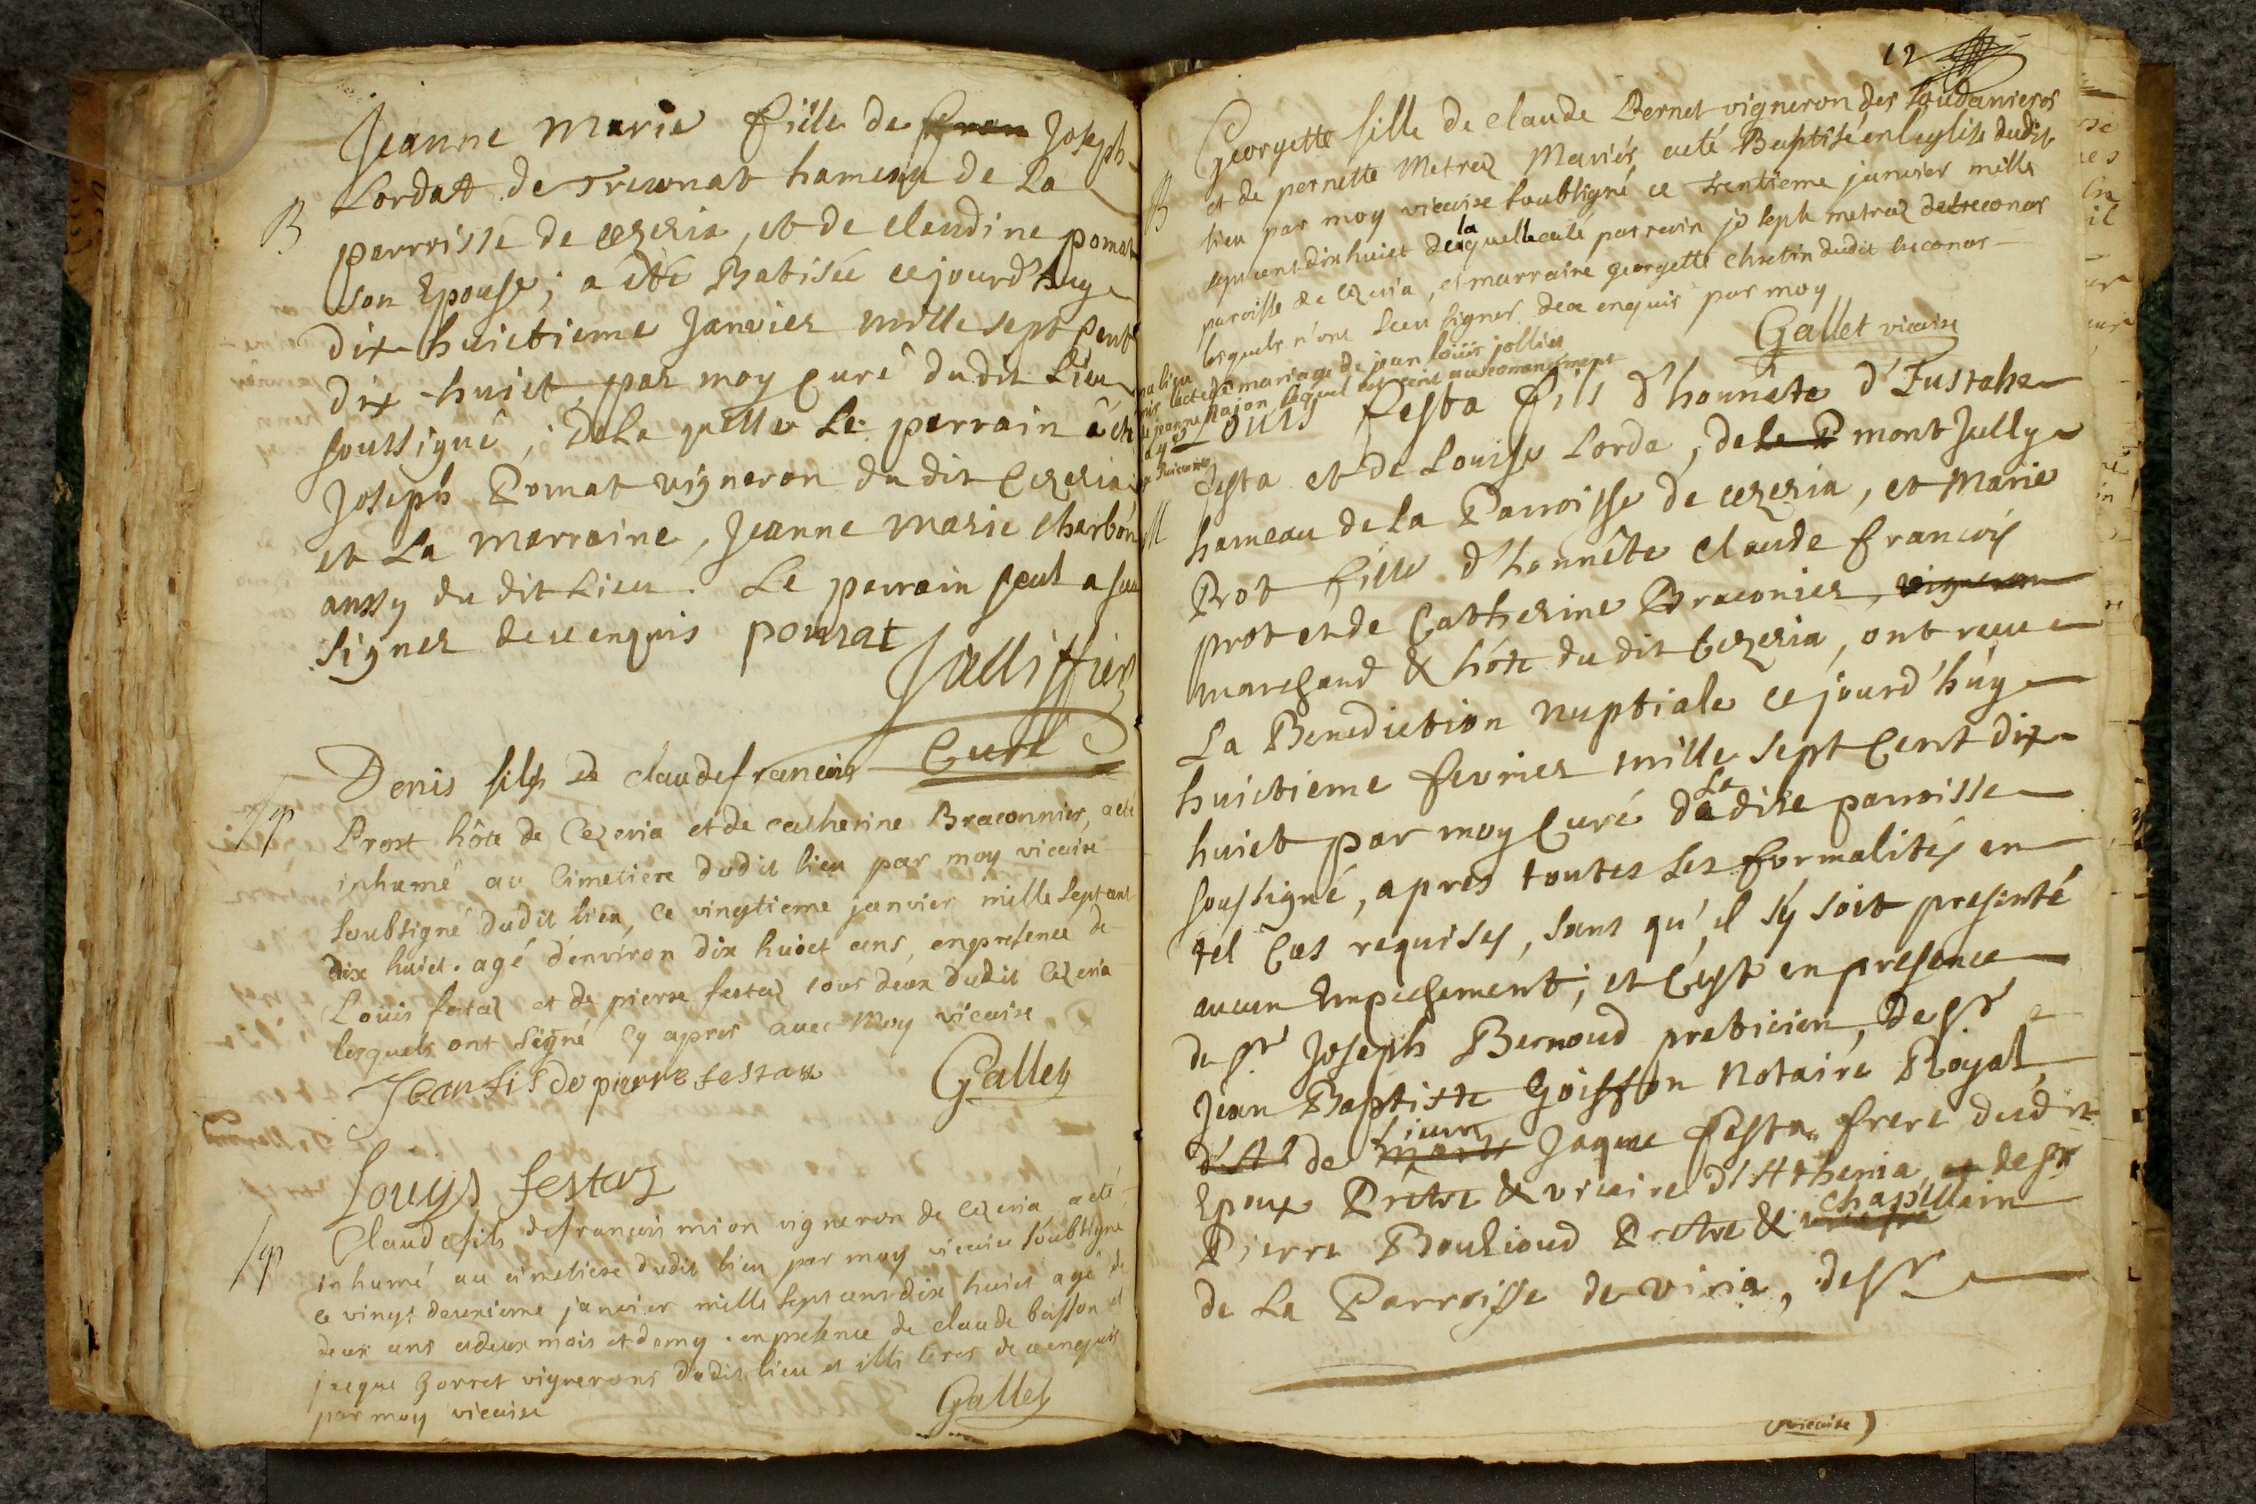 Jeanne Marie fille de Joseph
Lordat de Treconat hameau de La
B
parroisse de cezeria, et de claudine pomat
son Epouse; a été Batisée cejourd'huy
dix huictieme Janvier mille sept cent
dix-huict par moy Curé dudit Lieu
soussigné, De La quelle Le parrain a été
Joseph Pomat vigneron du dit Cezeria
et La marraine, Jeanne marie Charbon
aussy du dit Lieu. Le parrain seul a sceu
signer de ce enquis pomat
Jullifier
Curé
Denis fils de claude francois
Sp
Prost hôte de Cezeria et de catherine Braconnier, a eté
inhumé au Cimetiere dudit lieu par moy vicaire
soubsigné dudit lieu, ce vingtieme janvier mille sept cent
dix huict. agé d'environ dix huict ans, en presence de
Louis festaz et de pierre festaz tous deux dudit Cezeria
lesquels ont signé cy apres avec moy vicaire
Jean fis de pierre festaz
Gallet
Louys festaz
Claude fils de françois mion vigneron de cezeria a eté
Sp
inhumé au cimetiere dudit lieu par moy vicaire soubsigné
ce vingt deuxieme janvier mille sept cent dix huict agé de
deux ans et deux mois et demy. en presence de claude boisson et
jacque Gorret vignerons dudit lieu et illiteres de ce enquis
par moy vicaire
Gallet
12
Georgette fille de claude Bernet vigneron des
et de pernette Metraz Mariés a eté Baptisé en l'eglise dudit
B
lieu par moy vicaire soubsigné ce trentieme janvier mille
sept cent dix huict de la quelle a eté parrain joseph metraz de treconas
paroisse de cezeria, et marraine georgette chretin dudit treconas
lesquels n'ont sceu signer de ce enquis par moy
Gallet vicaire
mariage de jean louis jollier
Louis Festa fils d'honnête d'Eustache
Festa et de Louise Lorda, de mont Jully
M
hameau de la Parroisse de cezeria, et Marie
Prot fille d'honnête claude francois
prot et de Catherine Braconier, vigneron
marchand & hôte du dit Cezeria, ont receu
La Benediction nuptiale cejourd'huy
huictieme fevrier mille sept Cent dix
huict par moy Curé de La dite parroisse
soussigné, apres toutes les formalités en
tel Cas requises, sans qu'il s'y soit presenté
aucun Empechement; et C'est en presence
de Sr Joseph Bernoud praticien, de Sr
Jean Baptiste Goiffon Notaire Royal
de Sieur Jaque Festa frere dudit
Epoux Prètre & vicaire d'Athenia, de Sr
Pierre Boulioud Prètre & Chapellain
de La Parroisse de viria, de Sr
vicaire